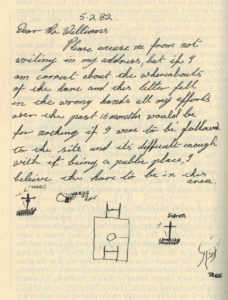 5.2.82
Dear Mr Williams
Please excuse me from not
writing in my address, but if I
am correct about the whereabouts
of the hare and this letter fell
in the wrong hands all my efforts
over the past 16 months would be
for nothing if I were to be followed
to the site and its difficult enough
with it being a public place, I
beleive the hare to be in this
area.
TREES